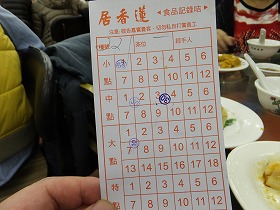 居香蓮
食品記錄咭
檯號 21 茶位 經手人
小點 1 2 3 4 5 6
7 8 9 10 11 12
中點 1 2 3 4 5 6
7 8 9 10 11 12
大點 1 2 3 4 5 6
7 8 9 10 11 12
13 14 15 16 17 18
特點 1 2 3 4 5 6
7 8 9 10 11 12